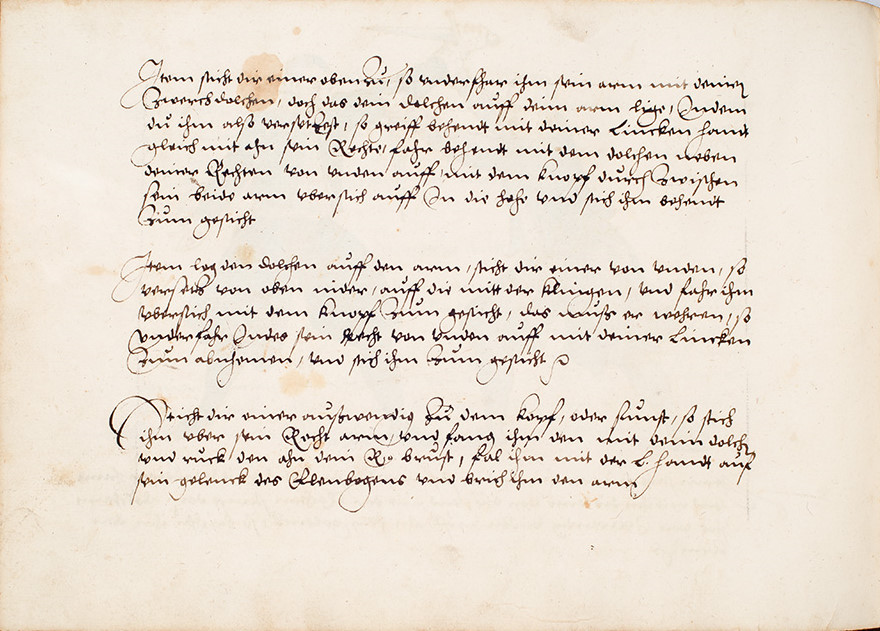 Item sticht dir einer oben zu, so vnderfhar ihm sein arm mit deinem
Zwerch dolchen, doch das dein dolchen auff deim arm lige, Indem
du ihm also versetzest, so greiff behendt mit deiner Lincken handt
gleich mit ahn sein Rechte, fahr behendt mit dem dolchen neben
deiner Rechten von vnden auff, mit dem knopf durch zwischen
sein beide arm vbersich auff In die hohe vnd stich ihm behendt
zum gesicht
Item leg den dolchen auff den arm, sticht dir einer von vnden, so
versetz von oben nider, auff die mitt der klingen, vnd fahr ihm
vbersich mit dem knopf zum gesicht, das muß er wehren, so
vnderfahr Indes sein recht von vnden auff mit deiner Lincken
zum abnhemen, vnd stich ihm zum gesicht
Sticht dir einer außwendig zu dem kopf, oder sunst, so stich
ihm vber sein Recht arm, vnd fang ihm den mit deim dolchen
vnd ruck den ahn dein Re brust, fal ihm mit der L. handt auf
sein gelenck des Elenbogens vnd brich ihm den arm